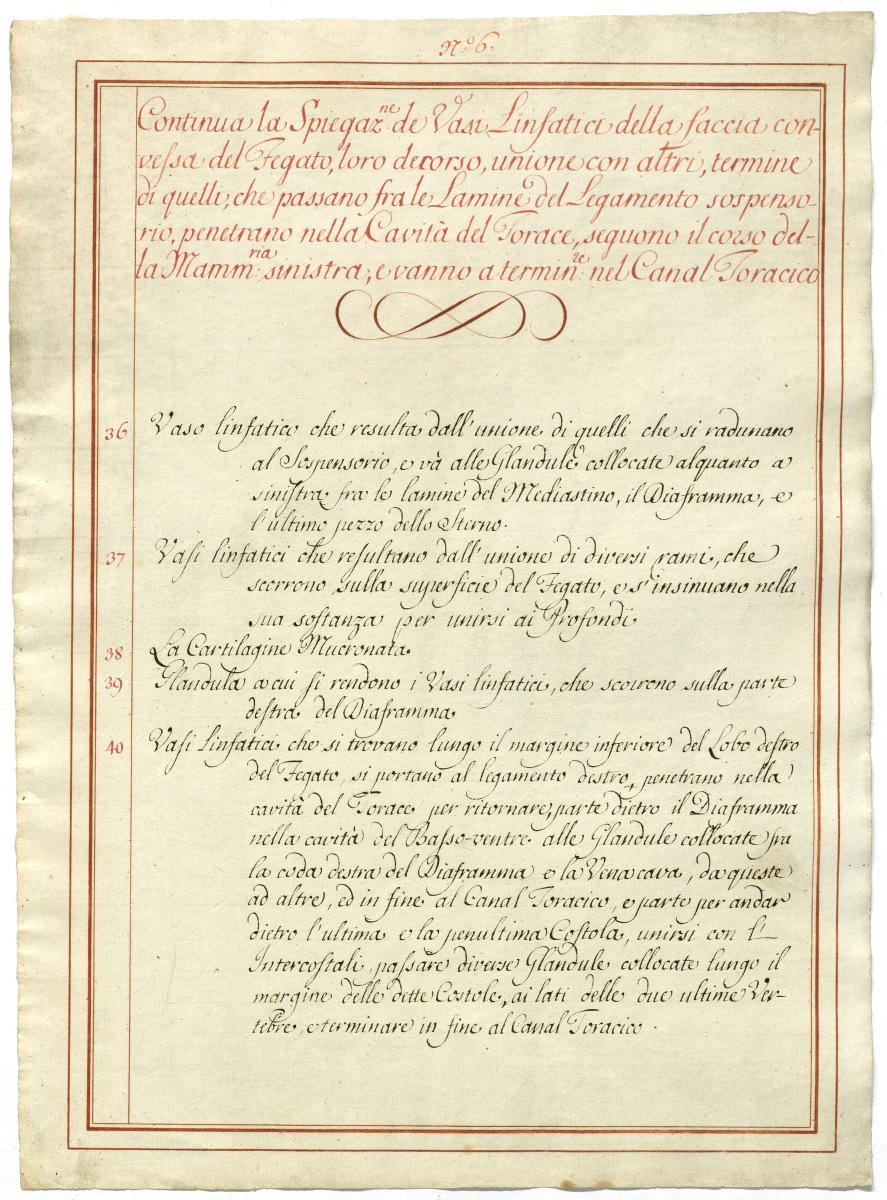 N.o 6.
Continua la Spiegaz.ne de Vasi Linfatici della faccia con-
vessa del Fegato, loro decorso, unione con altri, termine
di quelli, che passano fra le Lamine del Legamento sospenso-
rio, penetrano nella Cavità del Torace, seguono il corso del-
la Mamm:ria sinistra, e vanno a termin:re nel Canal Toracico
36 Vaso linfatico che resulta dall'unione di quelli che si radunano
al Sospensorio, e và alle Glandule collocate alquanto a
sinistra fra le lamine del Mediastino, il Diaframma, e
l'ultimo pezzo dello Sterno.
37 Vasi linfatici che resultano dall'unione di diversi rami, che
scorrono sulla superficie del Fegato, e s'insinuano nella
sua sostanza per unirsi ai Profondi.
38 La Cartilagine Mucronata.
39 Glandula a cui si rendono i Vasi linfatici, che scorrono sulla parte
destra del Diaframma.
40 Vasi Linfatici che si trovano lungo il margine inferiore del Lobo destro
del Fegato, si portano al legamento destro, penetrano nella
cavità del Torace per ritornare, parte dietro il Diaframma
nella cavità del Basso-ventre alle Glandule collocate fra
la coda destra del Diaframma e la Vena cava, da queste
ad altre, ed in fine al Canal Toracico, e parte per andar
dietro l'ultima e la penultima Costola, unirsi con l'
Intercostali, passare diverse Glandule collocate lungo il
margine delle dette Costole, ai lati delle due ultime Ver-
tebre, e terminare in fine al Canal Toracico.